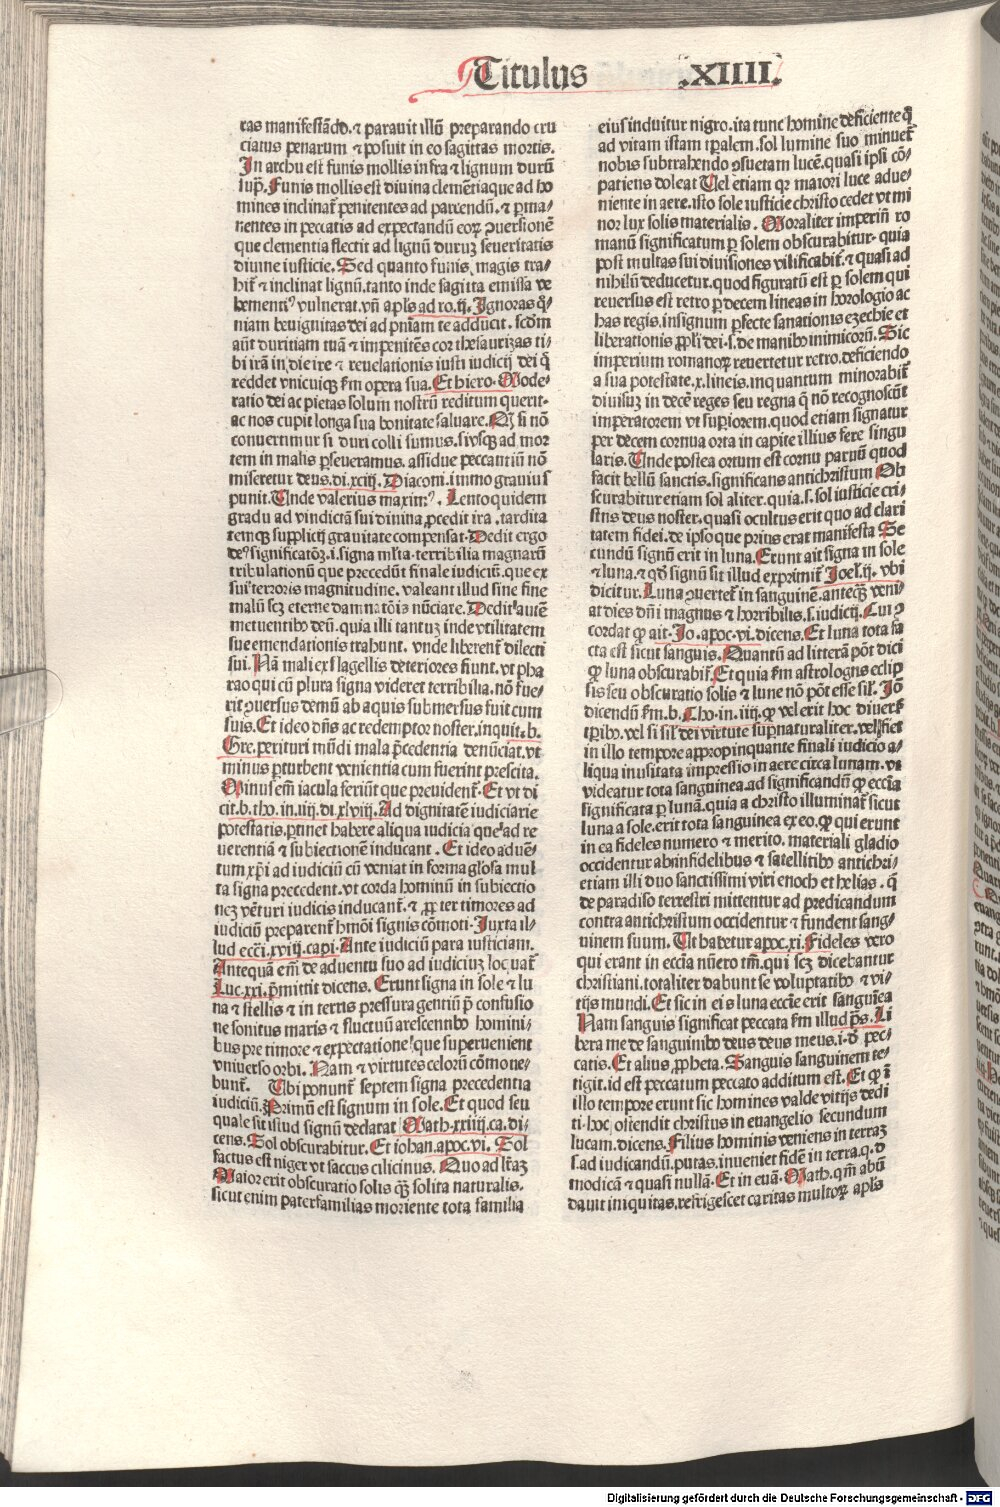 Titulus .XIIII.
ras manifestãdo. ⁊ parauit illũ preparando cru
ciatus penarum ⁊ posuit in eo sagittas mortis.
In archu est funis mollis infra ⁊ lignum durũ
sup̃. Funis mollis est diuina clemẽtiaque ad ho
mines inclinat᷑ penitentes ad parcendũ. ⁊ ꝑma/
nentes in peccatis ad expectandũ eoꝝ ꝯuersionẽ
que clementia flectit ad lignũ duruꝫ seueritatis
diuine iusticie. Sed quanto funis magis tra/
hit᷑ ⁊ inclinat lignũ. tanto inde sagitta emissa ve
hementi⁹ vulnerat. vñ apl̃s ad ro. ij. Ignoras q̃/
niam benignitas dei ad pñiam te adducit. scd̃m
aũt duritiam tuã ⁊ impenitẽs cor thesaurizas ti/
bi irã in die ire ⁊ reuelationis iusti iudicij dei q̃
reddet vnicuiqꝫ ẜm opera sua. Et hiero. Mode/
ratio dei ac pietas solum nostrũ reditum querit.
ac nos cupit longa sua bonitate saluare. Ꝙ si nõ
conuertimur si duri colli sumus. si vsqꝫ ad mor
tem in malis ꝑseueramus. assidue peccantiũ nõ
miseretur deus. di. xciij. Diaconi. immo grauius
punit. Unde valerius maxim⁹. Lento quidem
gradu ad vindictã sui diuina ꝓcedit ira. tardita
temqꝫ supplicij grauitate compensat. Dedit ergo
de⁹ significatõꝫ. i. signa ml̃ta terribilia magnarũ
tribulationũ que precedũt finale iudiciũ. que ex
sui terroris magnitudine. valeant illud sine fine
malũ scꝫ eterne damnatõis nũciare. Dedit autẽ
metuentibꝰ deũ. quia illi tantuꝫ inde vtilitatem
sue emendationis trahunt. vnde liberent᷑ dilecti
sui. Nã mali ex flagellis deteriores fiunt. vt pha
rao qui cũ plura signa videret terribilia. nõ fue/
rit ꝯuersus demũ ab aquis submersus fuit cum
suis. Et ideo dñs ac redemptor noster. inquit. b.
Gre. perituri mũdi mala p̃cedentia denũciat. vt
minus ꝑturbent venientia cum fuerint prescita.
Minus em̃ iacula feriũt que preuident᷑. Et vt di
cit. b. tho. in. iiij. di. xlviij. Ad dignitatẽ iudiciarie
potestatis. ꝑtinet habere aliqua iudicia que ad re
uerentiã ⁊ subiectionẽ inducant. Et ideo aduẽ/
tum xp̃i ad iudiciũ cũ veniat in forma gl̃osa mul
ta signa precedent. vt corda hominũ in subiectio
neꝫ vẽturi iudicis inducant᷑. ⁊ ꝓpter timores ad
iudiciũ preparent᷑ hmõi signis cõmoti. Iuxta il/
lud ecci. xviij. capi. Ante iudiciũ para iusticiam.
Antequã em̃ de aduentu suo ad iudiciuꝫ loquat᷑
Luc. xxi. p̃mittit dicens. Erunt signa in sole ⁊ lu
na ⁊ stellis ⁊ in terris pressura gentiũ p̃ confusio
ne sonitus maris ⁊ fluctuũ arescentibꝰ homini/
bus pre timore ⁊ expectatione que superuenient
vniuerso orbi. Nam ⁊ virtutes celorũ cõmoue/
bunt᷑. Ubi ponunt᷑ septem signa precedentia
iudiciũ. Primũ est signum in sole. Et quod seu
quale sit istud signũ declarat Math. xxiiij. ca. di/
cens. Sol obscurabitur. Et iohan. apoc. vi. Sol
factus est niger vt saccus cilicinus. Quo ad lr̃aꝫ
Maior erit obscuratio solis qꝫ solita naturalis.
sicut enim paterfamilias moriente tota familia
eius induitur nigro. ita tunc homine deficiente q̃
ad vitam istam tꝑalem. sol lumine suo minuet᷑
nobis subtrahendo ꝯsuetam lucẽ. quasi ipsi cõ/
patiens doleat Uel etiam qꝛ maiori luce adue/
niente in aere. isto sole iusticie christo cedet vt mi
noꝛ lux solis materialis. Moraliter imperiũ ro
manũ significatum ꝑ solem obscurabitur. quia
post multas sui diuisiones vilificabit᷑. ⁊ quasi ad
nihilũ deducetur. quod figuratũ est ꝑ solem qui
reuersus est retro ꝑ decem lineas in horologio ac
has regis. in signum ꝑfecte sanationis ezechie et
liberationis ppl̃i dei. s. de manibꝰ inimicorũ. Sic
imperium romanoꝝ reuertetur retro. deficiendo
a sua potestate. x. lineis. inquantum minorabit᷑
diuisuꝫ in decẽ reges seu regna q̃ nõ recognoscũt
imperatorem vt suꝑiorem. quod etiam signatur
per decem cornua orta in capite illius fere singu
laris. Unde postea ortum est cornu paruũ quod
facit bellũ sanctis. significans antichristum Ob
scurabitur etiam sol aliter. quia. s. sol iusticie cri/
stus deus noster. quasi ocultus erit quo ad clari
tatem fidei. de ipso que prius erat manifesta Se
cundũ signũ erit in luna. Erunt ait signa in sole
⁊ luna. ⁊ qd̃ signũ sit illud exprimit᷑ Joel. ij. vbi
dicitur. Luna ꝯuertet᷑ in sanguinẽ. anteqꝫ veni/
at dies dñi magnus ⁊ horribilis. s. iudicij. Cui ꝯ
cordat ꝙ ait. Jo. apoc. vi. dicens. Et luna tota fa
cta est sicut sanguis. Quantũ ad litterã põt dici
ꝙ luna obscurabit᷑. Et quia ẜm astrologos eclip
sis seu obscuratio solis ⁊ lune nõ põt esse sil̃. Jõ
dicendũ ẜm. b. Tho. in. iiij. ꝙ vel erit hoc diuers̃
tꝑibꝰ. vel si sil̃ dei virtute suꝑnaturaliter. vel fiet
in illo tempore appropinquante finali iudicio a/
liqua inusitata impressio in aere circa lunam. vt
videatur tota sanguinea. ad significandũ ꝙ eccĩa
significata ꝑ lunã. quia a christo illuminat᷑ sicut
luna a sole. erit tota sanguinea ex eo. ꝙ qui erunt
in ea fideles numero ⁊ merito. materiali gladio
occidentur ab infidelibus ⁊ satellitibꝰ antichri/
etiam illi duo sanctissimi viri enoch et helias. q̃
de paradiso terrestri mittentur ad predicandum
contra antichristum occidentur ⁊ fundent sang/
uinem suum. Ut habetur apoc. xi. Fideles vero
qui erant in eccĩa nũero tm̃. qui scꝫ dicebantur
christiani. totaliter dabunt se voluptatibꝰ ⁊ vi/
tijs mundi. Et sic in eis luna eccĩe erit sanguĩea
Nam sanguis significat peccata ẜm illud p̃s. Li
bera me de sanguinibꝰ deus deus meus. i. d̃ pec/
catis. Et alius ꝓpheta. Sanguis sanguinem te/
tigit. id est peccatum peccato additum est. Et ꝙ ĩ
illo tempore erunt sic homines valde vitijs dedi
ti. hoc ostendit christus in euangelio secundum
lucam. dicens. Filius hominis veniens in terraꝫ
s. ad iudicandũ. putas. inueniet fidẽ in terra. q. d̃
modicã ⁊ quasi nullã. Et in euã. Math. qm̃ abũ
dauit iniquitas. refrigescet caritas multoꝝ apl̃s
Digitalisierung gefördert durch die Deutsche Forschungsgemeinschaft - DFG